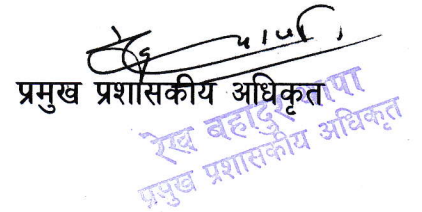 प्रमुख प्रशासकीय अधिकृत
रेख बहादुर थापा
प्रमुख प्रशासकीय अधिकृत